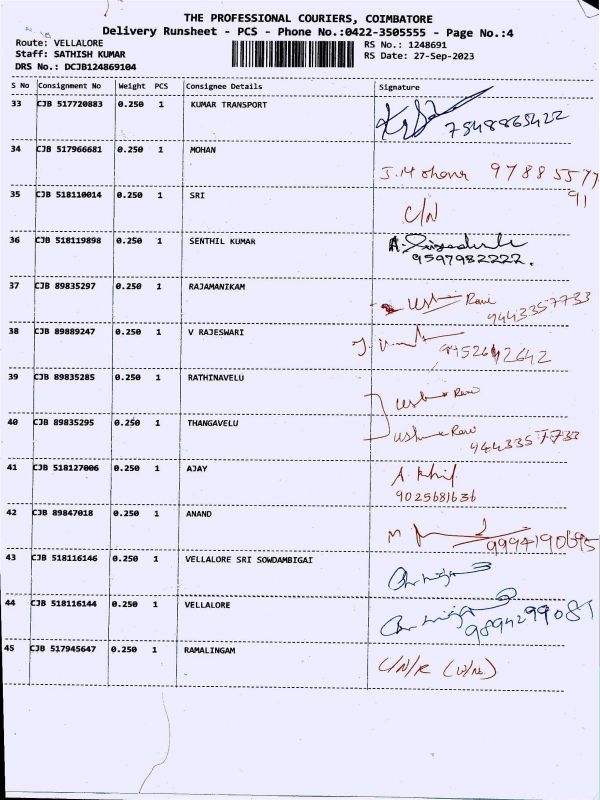 THE PROFESSIONAL COURIERS, COIMBATORE
Delivery Runsheet - PCS - Phone No.:0422-3505555 - Page No.:4
Route: VELLALORE
RS No.: 1248691
Staff: SATHISH KUMAR
RS Date: 27-Sep-2023
DRS No.: DCJB124869104
S No Consignment No Weight PCS Consignee Details Signature
33 CJB 517720883 0.250 1 KUMAR TRANSPORT
7548865422
34 CJB 517966681 0.250 1 MOHAN
J.Mohana 97885577
91
35 CJB 518110014 0.250 1 SRI
C/N
36 CJB 518119898 0.250 1 SENTHIL KUMAR
9597982222.
37 CJB 89835297 0.250 1 RAJAMANIKAM
Ravi
9443357733
38 CJB 89889247 0.250 1 V RAJESWARI
39 CJB 89835285 0.250 1 RATHINAVELU
Ravi
40 CJB 89835295 0.250 1 THANGAVELU
Ravi
9443357733
41 CJB 518127006 0.250 1 AJAY
A. Khil
9025681636
42 CJB 89847018 0.250 1 ANAND
9994190695
43 CJB 518116146 0.250 1 VELLALORE SRI SOWDAMBIGAI
44 CJB 518116144 0.250 1 VELLALORE
9894299087
45 CJB 517945647 0.250 1 RAMALINGAM
C/N/R